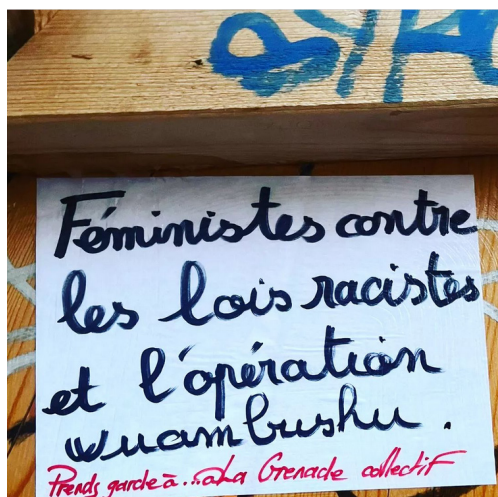 Féministes contre
les lois racistes
et l'opération
wuambushu.
Prends garde à... La Grenade collectif